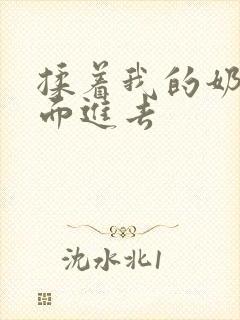 揉着我的奶
而进去
沈水北1